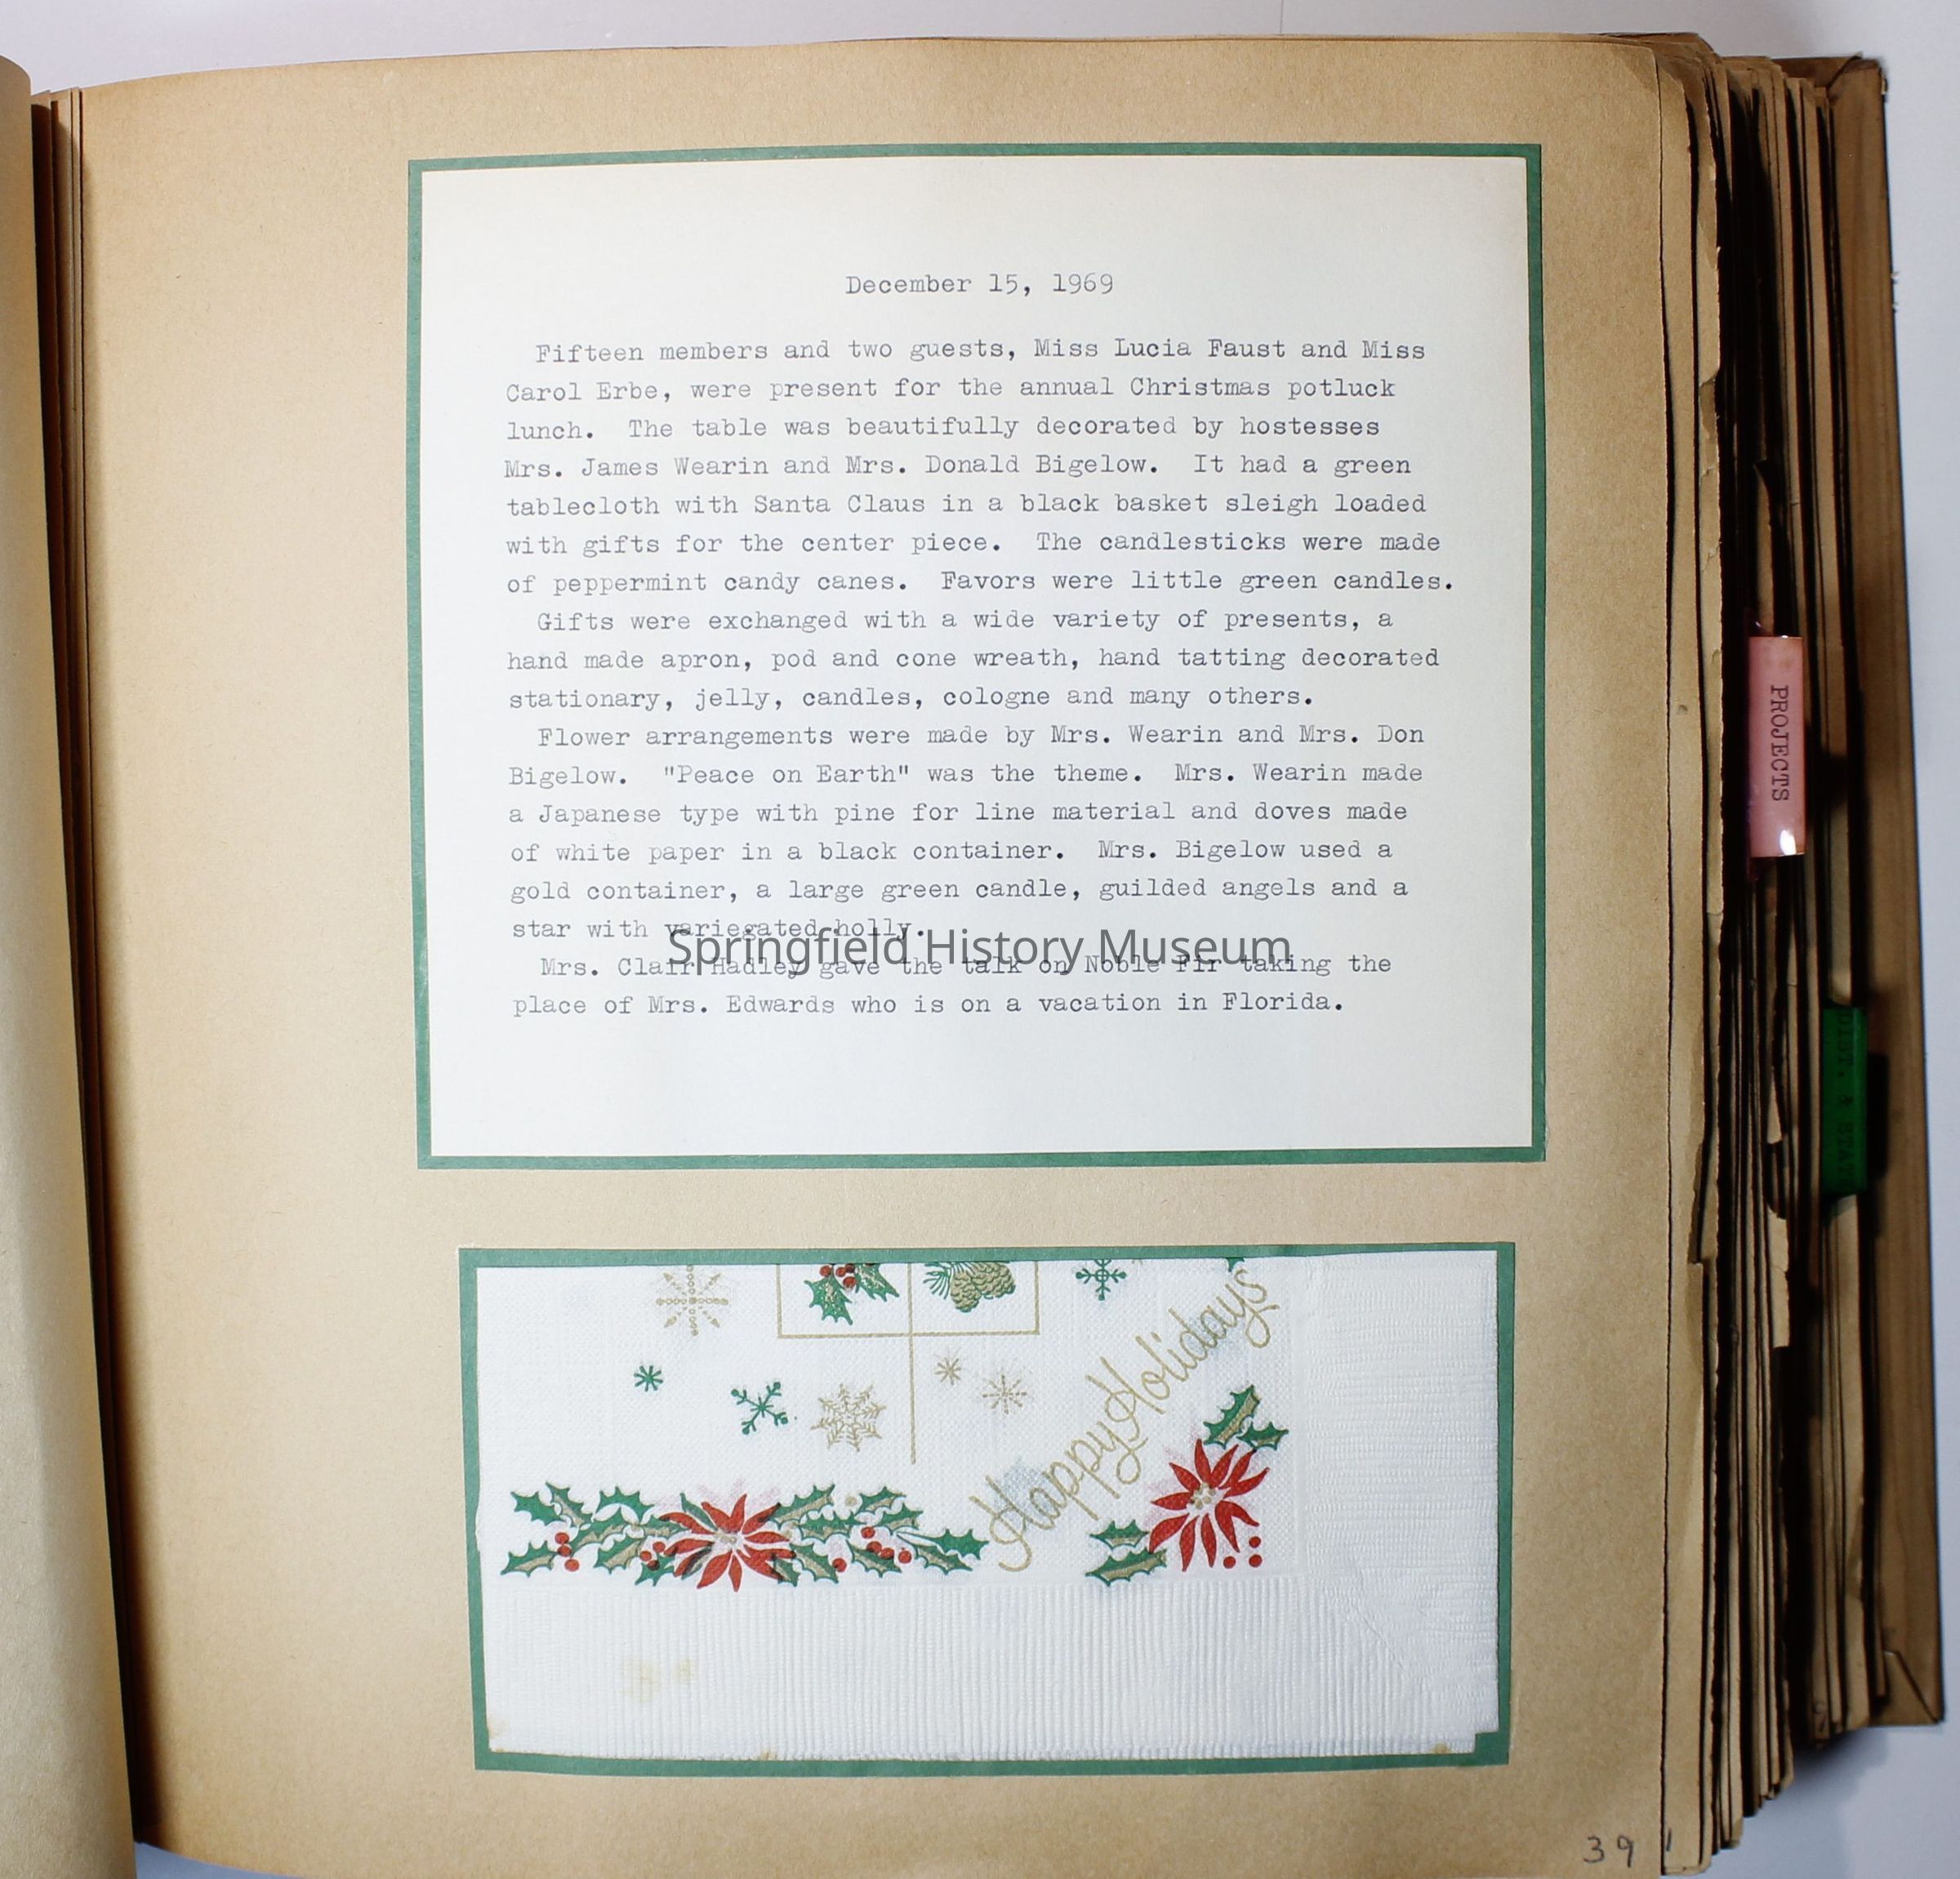 December 15, 1969
Fifteen members and two guests, Miss Lucia Faust and Miss
Carol Erbe, were present for the annual Christmas potluck
lunch. The table was beautifully decorated by hostesses
Mrs. James Wearin and Mrs. Donald Bigelow. It had a green
tablecloth with Santa Claus in a black basket sleigh loaded
with gifts for the center piece. The candlesticks were made
of peppermint candy canes. Favors were little green candles.
Gifts were exchanged with a wide variety of presents, a
hand made apron, pod and cone wreath, hand tatting decorated
stationary, jelly, candles, cologne and many others.
Flower arrangements were made by Mrs. Wearin and Mrs. Don
Bigelow. "Peace on Earth" was the theme. Mrs. Wearin made
a Japanese type with pine for line material and doves made
of white paper in a black container. Mrs. Bigelow used a
gold container, a large green candle, guilded angels and a
star with variegated holly.
Springfield History Museum
Mrs. Clair Hadley gave the talk on Noble Fir taking the
place of Mrs. Edwards who is on a vacation in Florida.
PROJECTS
& STATE
Happy Holidays
39